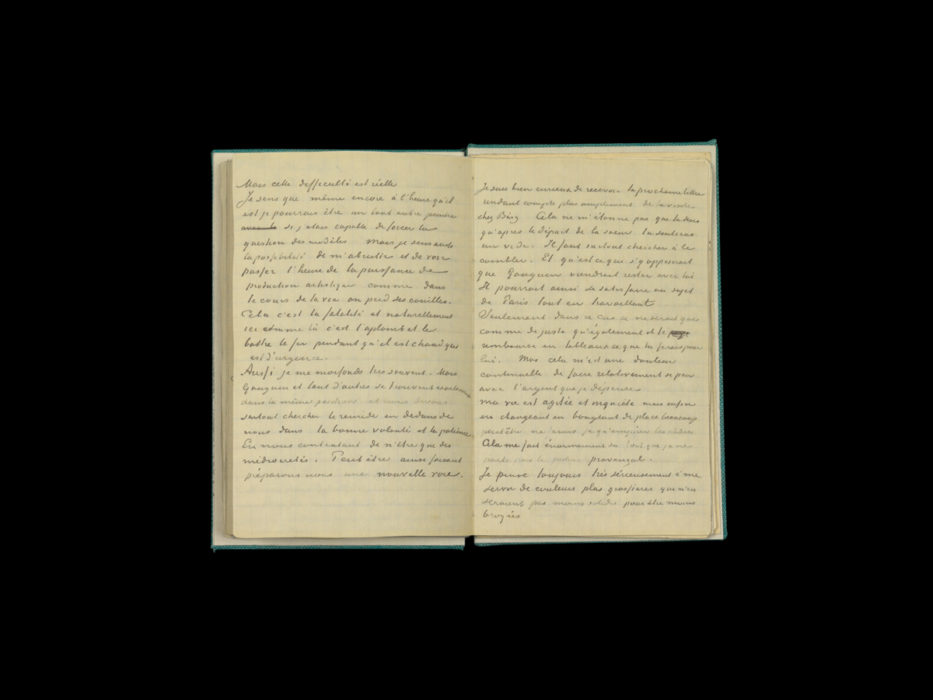 Mais cette difficulté est réelle
Je sens que même encore à l'heure qu'il
est je pourrais être un tout autre peintre
si j'étais capable de forcer la
question des modèles mais je sens aussi
la possibilité de m'abrutir et de voir
passer l'heure de la puissance de
production artistique comme dans
le cours de la vie on perd ses couilles.
Cela c'est la fatalité et naturellement
ici comme là c'est l'aplomb et le
battre le fer pendant qu'il est chaud qui
est d'urgence.
Aussi je me morfonds très souvent. Mais
Gauguin et tant d'autres se trouvent
dans la même position et nous devons
surtout chercher le remède en dedans de
nous dans la bonne volonté et la patience.
En nous contentant de n'être que des
médiocrités. Peut être ainsi faisant
préparons nous une nouvelle voie.
Je suis bien curieux de recevoir ta prochaine lettre
rendant compte plus amplement de la visite
chez Bing Cela ne m'étonne pas que tu dises
qu'après le départ de la soeur tu sentiras
un vide. Il faut surtout chercher à le
combler. Et qu'est ce que s'y opposerait
que Gauguin viendrait rester avec toi
Il pourrait ainsi se satisfaire au sujet
de Paris tout en travaillant
Seulement dans ce cas ce ne serait que
comme de juste qu'également il te
rembourse en tableaux ce que tu ferais pour
lui. Moi cela m'est une douleur
continuelle de faire relativement si peu
avec l'argent que je dépense
ma vie est agitée et inquiète mais enfin
en changeant en bougeant de place beaucoup
peut être ne ferais je qu'empirer les choses
Cela me fait énormément de tort que je ne
parle pas le patois provençal.
Je pense toujours très sérieusement à me
servir de couleurs plus grossières qui n'en
seraient pas moins solides pour être moins
broyées